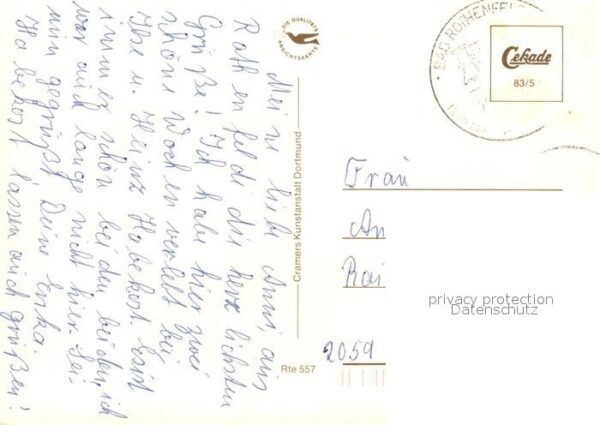 Meine liebe Anni, aus
Rothenfelde die herzlichsten
Grüße! Ich habe hier zwei
schöne Wochen verlebt bei
Ilse u. Heinz Habekost. Es ist
immer schön bei den beiden, ich
war auch lange nicht hier. Sei
nun gegrüßt Deine Erika.
Habekost lassen auch grüßen!
DIE QUALITÄTS
ANSICHTSKARTE
Cramers Kunstanstalt Dortmund
Rte 557
BAD ROTHENFELDE
Cekade
83/5
Frau
An
Rai
2059
privacy protection
Datenschutz